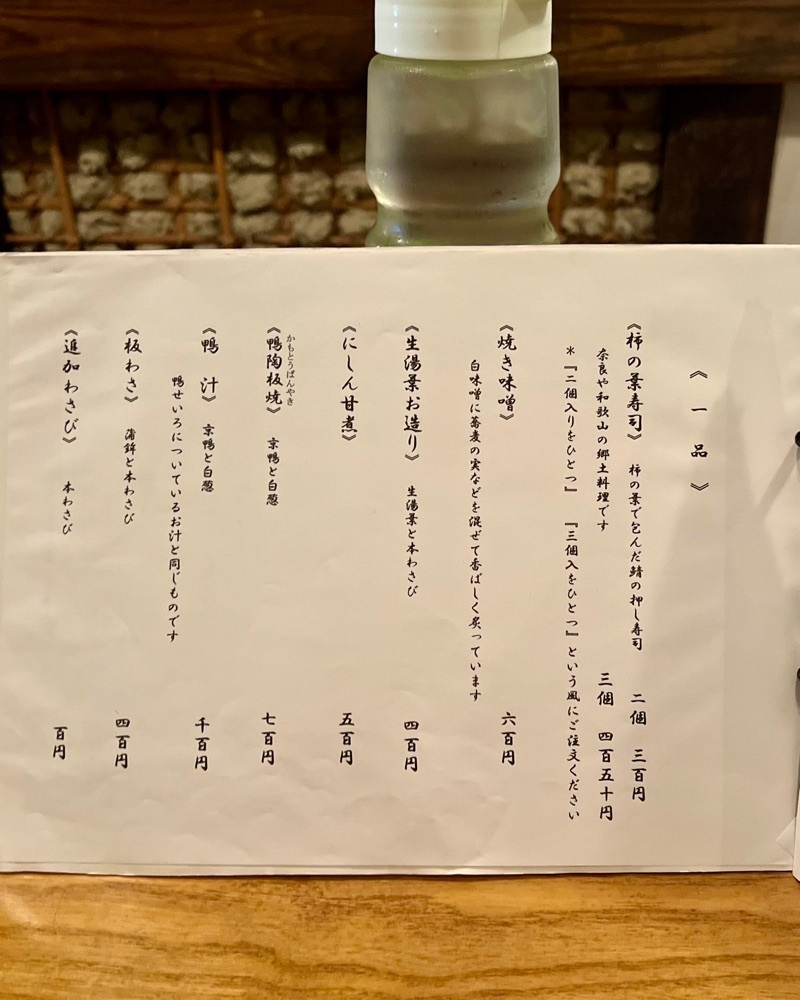 《一品》
《柿の葉寿司》 柿の葉で包んだ鯖の押し寿司 二個 三百円
奈良や和歌山の郷土料理です 三個 四百五十円
＊『二個入りをひとつ』 『三個入をひとつ』という風にご注文ください
《焼き味噌》 六百円
白味噌に蕎麦の実などを混ぜて香ばしく炙っています
《生湯葉お造り》 生湯葉と本わさび 四百円
《にしん甘煮》 五百円
かもとうばんやき
《鴨陶板焼》 京鴨と白葱 七百円
《鴨 汁》 京鴨と白葱 千百円
鴨せいろについているお汁と同じものです
《板わさ》 蒲鉾と本わさび 四百円
《追加わさび》 本わさび 百円